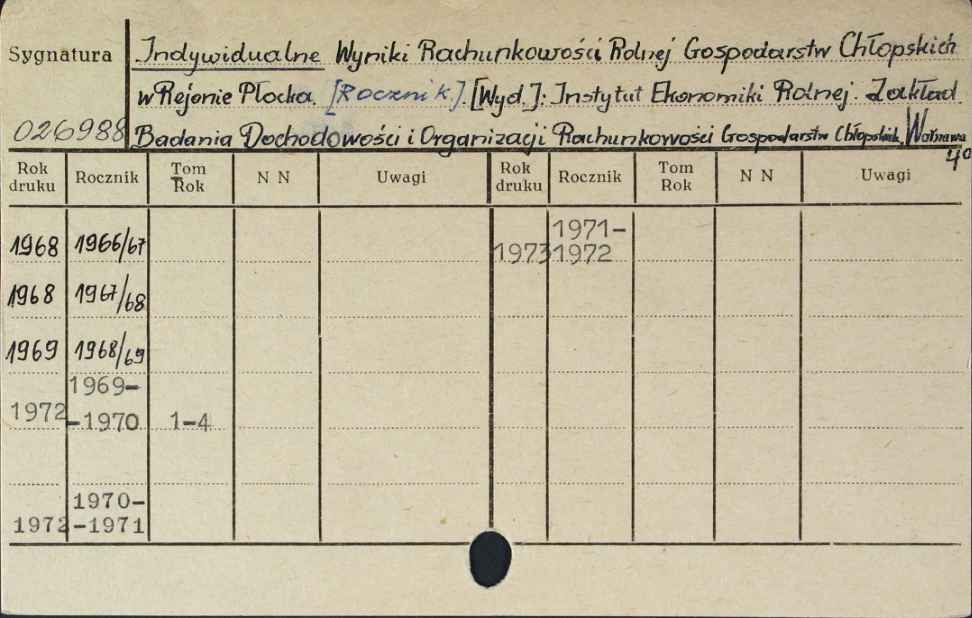 Sygnatura
Indywidualne Wyniki Rachunkowości Rolnej Gospodarstw Chłopskich
w Rejonie Płocka. [Rocznik]. [Wyd.]: Instytut Ekonomiki Rolnej. Zakład
026988 Badania Dochodowości i Organizacji Rachunkowości Gospodarstw Chłopskich. Warszawa
4º
Rok druku Rocznik Tom Rok N N Uwagi Rok druku Rocznik Tom Rok N N Uwagi
1968 1966/67 1973 1971-1972
1968 1967/68
1969 1968/69
1972 1969--1970 1-4
1972 1970--1971